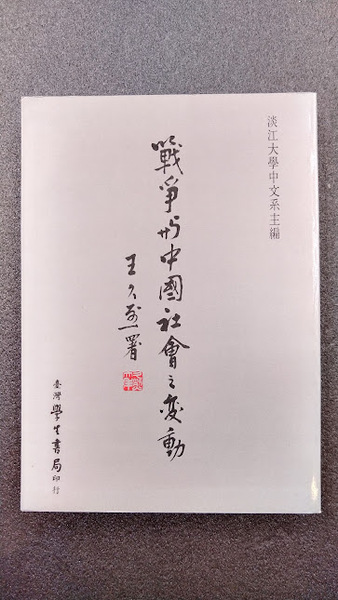 淡江大學中文系主編
戰爭與中國社會之變動
王久烈署
臺灣學生書局印行